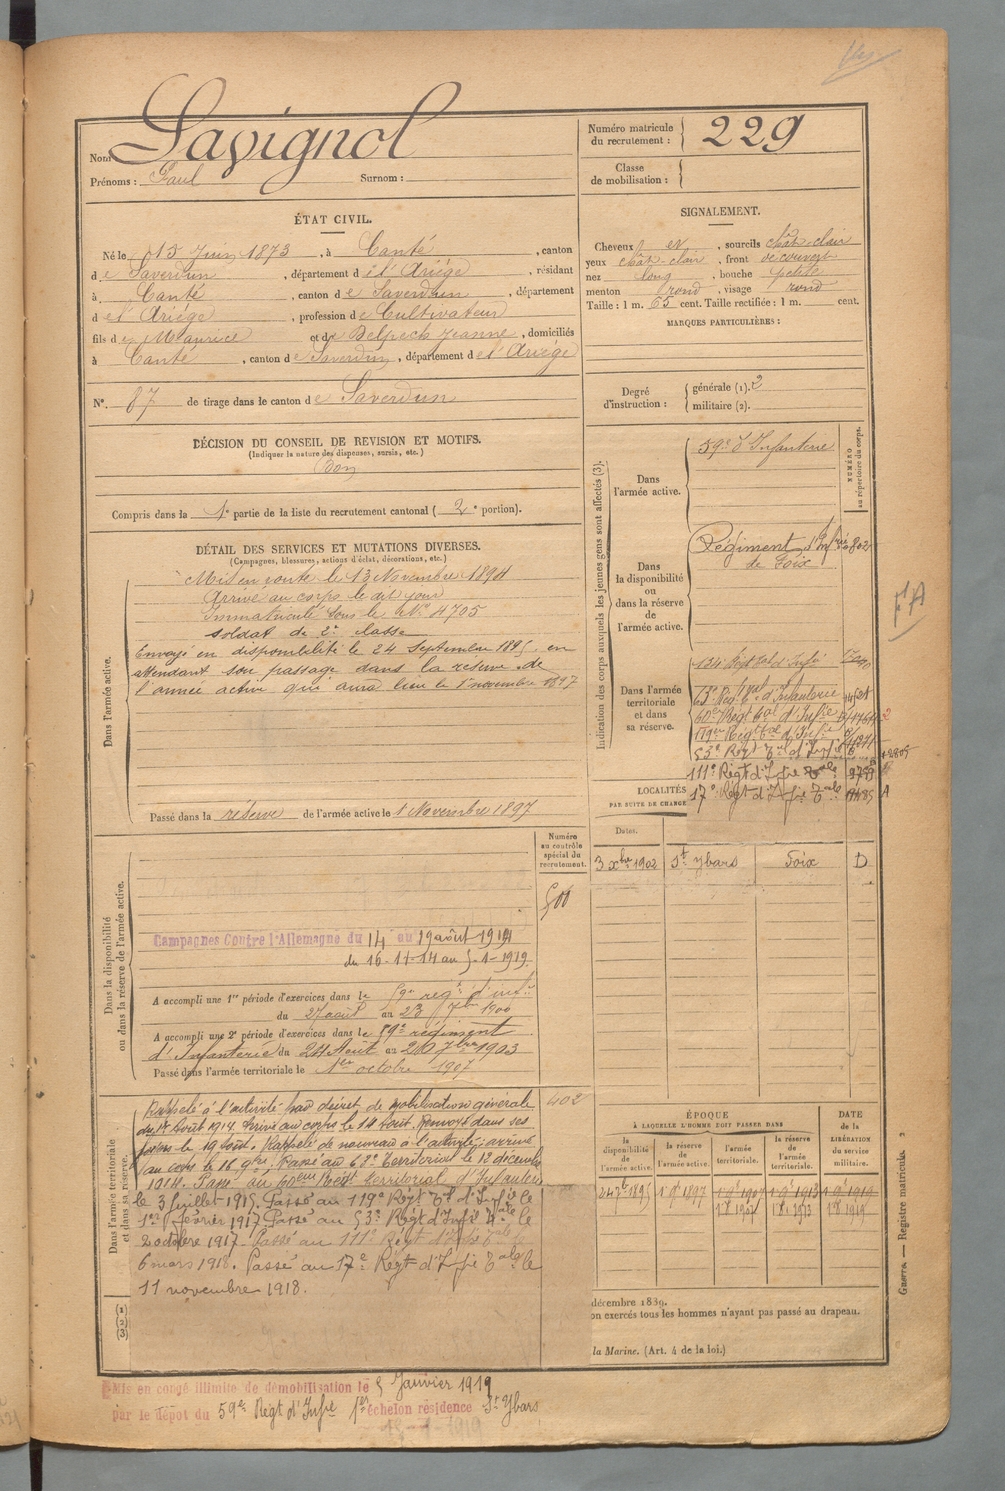 Nom Lavignol
Prénoms : Paul Surnom :
Numéro matricule du recrutement : 229
Classe de mobilisation :
ÉTAT CIVIL.
Né le 15 Juin 1873, à Canté, canton
de Saverdun, département de l'Ariége, résidant
à Canté, canton de Saverdun, département
de l'Ariége, profession de Cultivateur
fils de Maurice et de Delpech Jeanne, domiciliés
à Canté, canton de Saverdun, département de l'Ariége
N°. 87 de tirage dans le canton de Saverdun
SIGNALEMENT.
Cheveux, sourcils chât-clair
yeux chât-clair, front découvert
nez long, bouche petite
menton rond, visage rond
Taille : 1 m. 65 cent. Taille rectifiée : 1 m. cent.
MARQUES PARTICULIÈRES :
Degré d'instruction : générale (1). 2
militaire (2).
DÉCISION DU CONSEIL DE REVISION ET MOTIFS.
(Indiquer la nature des dispenses, sursis, etc.)
Bon
Compris dans la 1e partie de la liste du recrutement cantonal (2e portion).
DÉTAIL DES SERVICES ET MUTATIONS DIVERSES.
(Campagnes, blessures, actions d'éclat, décorations, etc.)
Dans l'armée active.
Mis en route le 13 Novembre 1894
Arrivé au corps le dit jour
Immatriculé sous le N° 4705
soldat de 2e classe
Envoyé en disponibilité le 24 Septembre 1895, en
attendant son passage dans la réserve de
l'armée active qui aura lieu le 1er novembre 1897
Passé dans la réserve de l'armée active le 1 Novembre 1897
Indication des corps auxquels les jeunes gens sont affectés (3).
NUMÉRO au répertoire du corps.
Dans l'armée active.
59e d'Infanterie
Dans la disponibilité ou dans la réserve de l'armée active.
Régiment d'Infrie
de Foix
Dans l'armée territoriale et dans sa réserve.
134 Régt
63e Régt d'Infanterie
60e Régt d'Infie
119e Régt d'Infie
53e Régt d'Infie
111e Régt d'Infie Tale
17e Régt d'Infie Tale
LOCALITÉS
PAR SUITE DE CHANGE
Dates.
3 Xbre 1902 St Ybars Foix D
FA
Numéro au contrôle spécial du recrutement.
Dans la disponibilité ou dans la réserve de l'armée active.
Campagnes Contre l'Allemagne du 14 au 19 août 1914
du 16-11-14 au 5-1-1919.
A accompli une 1re période d'exercices dans le 59e regt d'infie
du 27 aout au 23 7bre 1900
A accompli une 2e période d'exercices dans le 59e régiment
d'Infanterie du 24 Août au 20 7bre 1903
Passé dans l'armée territoriale le 1er octobre 1907
402
Dans l'armée territoriale et dans sa réserve.
Rappelé à l'activité par décret de mobilisation générale
du 1er Août 1914. Arrivé au corps le 14 Août. Renvoyé dans ses
foyers le 19 Août. Rappelé de nouveau à l'activité; arrivé
au corps le 16 9bre. Passé au 63e Territorial le 12 décembre
1914. Passé au 60eme Régt territorial d'Infanterie
le 3 Juillet 1915. Passé au 119e Régt Tal d'Infie le
1er février 1917. Passé au 53e Régt d'Infie Tale le
2 octobre 1917. Passé au 111e Régt d'Infie Tale le
6 mars 1918. Passé au 17e Régt d'Infie Tale le
11 novembre 1918.
ÉPOQUE
À LAQUELLE L'HOMME DOIT PASSER DANS
la disponibilité de l'armée active.
la réserve de l'armée active.
l'armée territoriale.
la réserve de l'armée territoriale.
DATE de la LIBÉRATION du service militaire.
24 7bre 1895 1 9bre 1897
(1)
(2)
(3)
décembre 1889.
on exercés tous les hommes n'ayant pas passé au drapeau.
la Marine. (Art. 4 de la loi.)
Guerre. — Registre matricule.
Mis en congé illimité de démobilisation le 5 Janvier 1919
par le dépôt du 59e Régt d'Infie 1er échelon résidence St Ybars